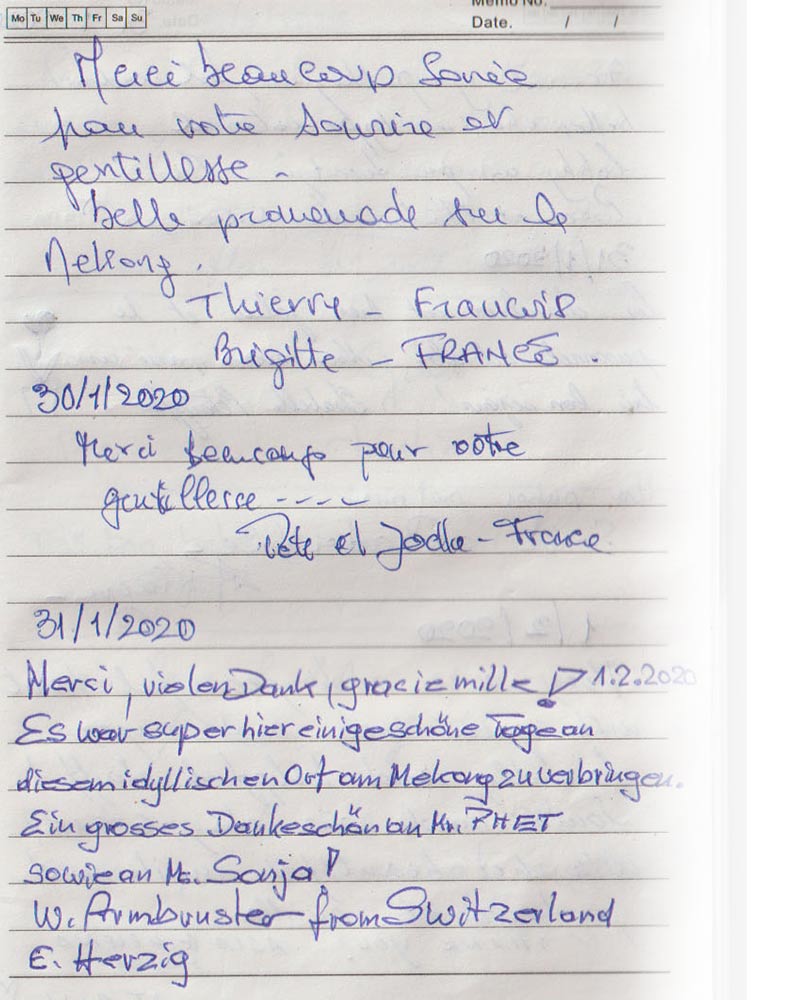 Mo Tu We Th Fr Sa Su
Memo No.
Date. / /
Merci beaucoup Sonia
pour votre sourire et
gentillesse -
belle promenade sur le
Mekong.
Thierry - Francois
Brigitte - FRANCE.
30/1/2020
Merci beaucoup pour votre
gentillesse ----
et Joelle - France
31/1/2020
Merci, vielen Dank, gracie mille! 1.2.2020
Es war super hier einige schöne Tage an
diesem idyllischen Ort am Mekong zu verbringen.
Ein grosses Dankeschön an Mr. PHET
sowie an Ms. Sonja!
W. Armbruster from Switzerland
E. Herzig